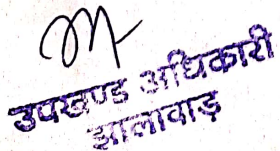 उपखण्ड अधिकारी
झालावाड़